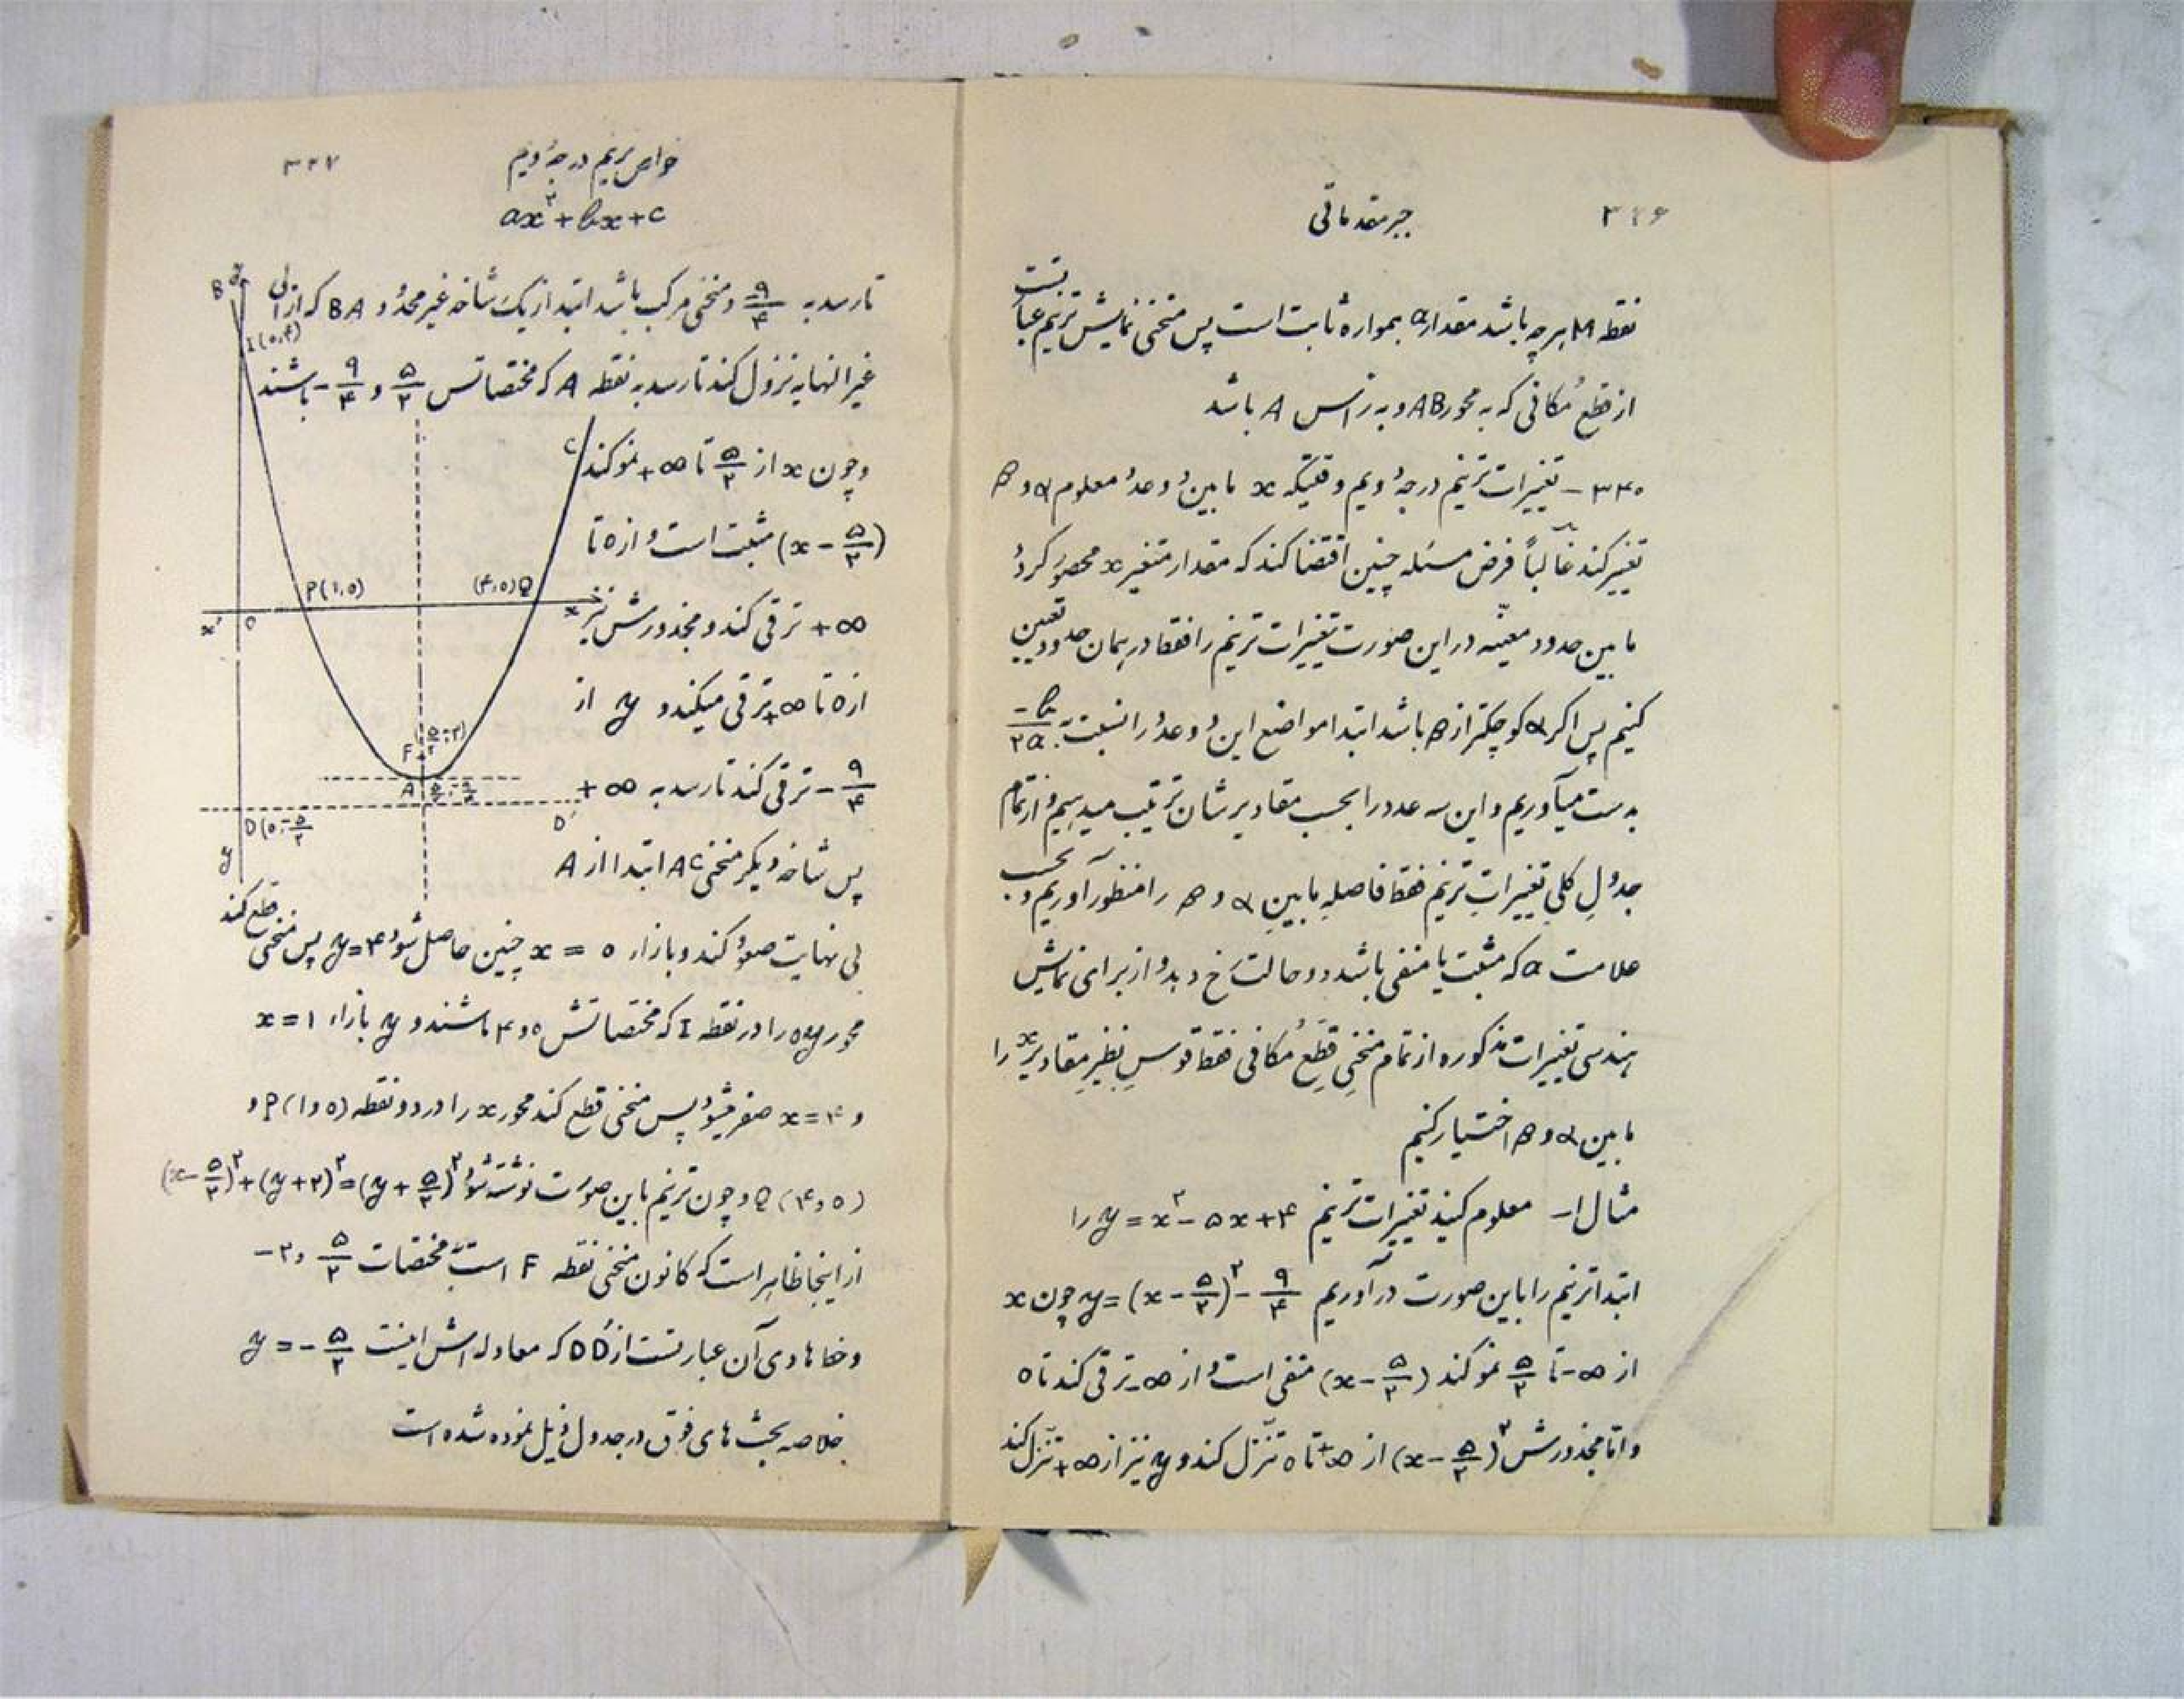 ۳۴۶
جبر مقدماتی
نقطه M هر چه باشد مقدار a همواره ثابت است پس منحنی نمایش ترینم عبارتست
از قطع مکافی که به محور AB و به رأس A باشد
۳۴۰ - تغییرات ترینم درجهٔ دویم وقتیکه x مابین دو عدد معلوم α و β
تغییر کند غالباً فرض مسئله چنین اقتضا کند که مقدار متغیر x محصور گردد
مابین حدود معیّنه در این صورت تغییرات ترینم را فقط در همان حدود تعیین
کنیم پس اگر α کوچکتر از β باشد ابتدا مواضع این دو عدد را نسبت به -b/۲a
بدست میآوریم و این سه عدد را بحسب مقادیرشان ترتیب میدهیم و از تمام
جدول کلی تغییرات ترینم فقط فاصله مابین α و β را منظور آوریم و بحسب
علامت a که مثبت یا منفی باشد دو حالت رخ دهد و از برای نمایش
هندسی تغییرات مذکوره از تمام منحنی قطع مکافی فقط قوس نظیر مقادیر x را
مابین α و β اختیار کنیم
مثال ۱- معلوم کنید تغییرات ترینم y = x² - ۵x + ۴ را
ابتدا ترینم را باین صورت درآوریم y = (x - ۵/۲)² - ۹/۴ چون x
از ∞- تا ۵/۲ نمو کند (x - ۵/۲) منفی است و از ∞- ترقی کند تا ۰
و اما مجذورش (x - ۵/۲)² از ∞+ تا ۰ تنزّل کند و y نیز از ∞+ تنزّل کند
خواص ترینم درجهٔ دویم
۳۴۷
ax² + bx + c
تا رسد به -۹/۴ و منحنی مرکب باشد ابتدا از یک شاخه غیر محدود BA که از
غیر النهایه نزول کند تا رسد به نقطه A که مختصاتس ۵/۲ و -۹/۴ باشند
و چون x از ۵/۲ تا ∞+ نمو کند
(x - ۵/۲) مثبت است و از ۰ تا
∞+ ترقی کند و مجذورش نیز
از ۰ تا ∞+ ترقی میکند و y از
-۹/۴ ترقی کند تا رسد به ∞+
پس شاخه دیگر منحنی AC ابتدا از A
لی نهایت صعود کند و بازاء x = ۰ چنین حاصل شود y=۴ پس منحنی قطع کند
محور oy را در نقطه I که مختصاتش ۰ و ۴ باشند و y بازاء x = ۱
و x = ۴ صفر میشود پس منحنی قطع کند محور x را در دو نقطه P(۱و۰) و
Q(۴و۰) و چون ترینم باین صورت نوشته شود (x-۵/۲)²+(y+۲)²=(y+۵/۲)²
از اینجا ظاهر است که کانون منحنی نقطه F است به مختصات ۵/۲ و ۲-
و خط هادی آن عبارتست از DD' که معادله اش اینست y = -۵/۲
خلاصه بحث های فوق در جدول ذیل نموده شده است
B
y
I(۰,۴)
C
P(۱,۰)
(۴,۰)Q
x'
O
x
(۵/۲,-۲)
F
A
۵/۲,-۹/۴
D(۰,-۵/۲)
D'
y'